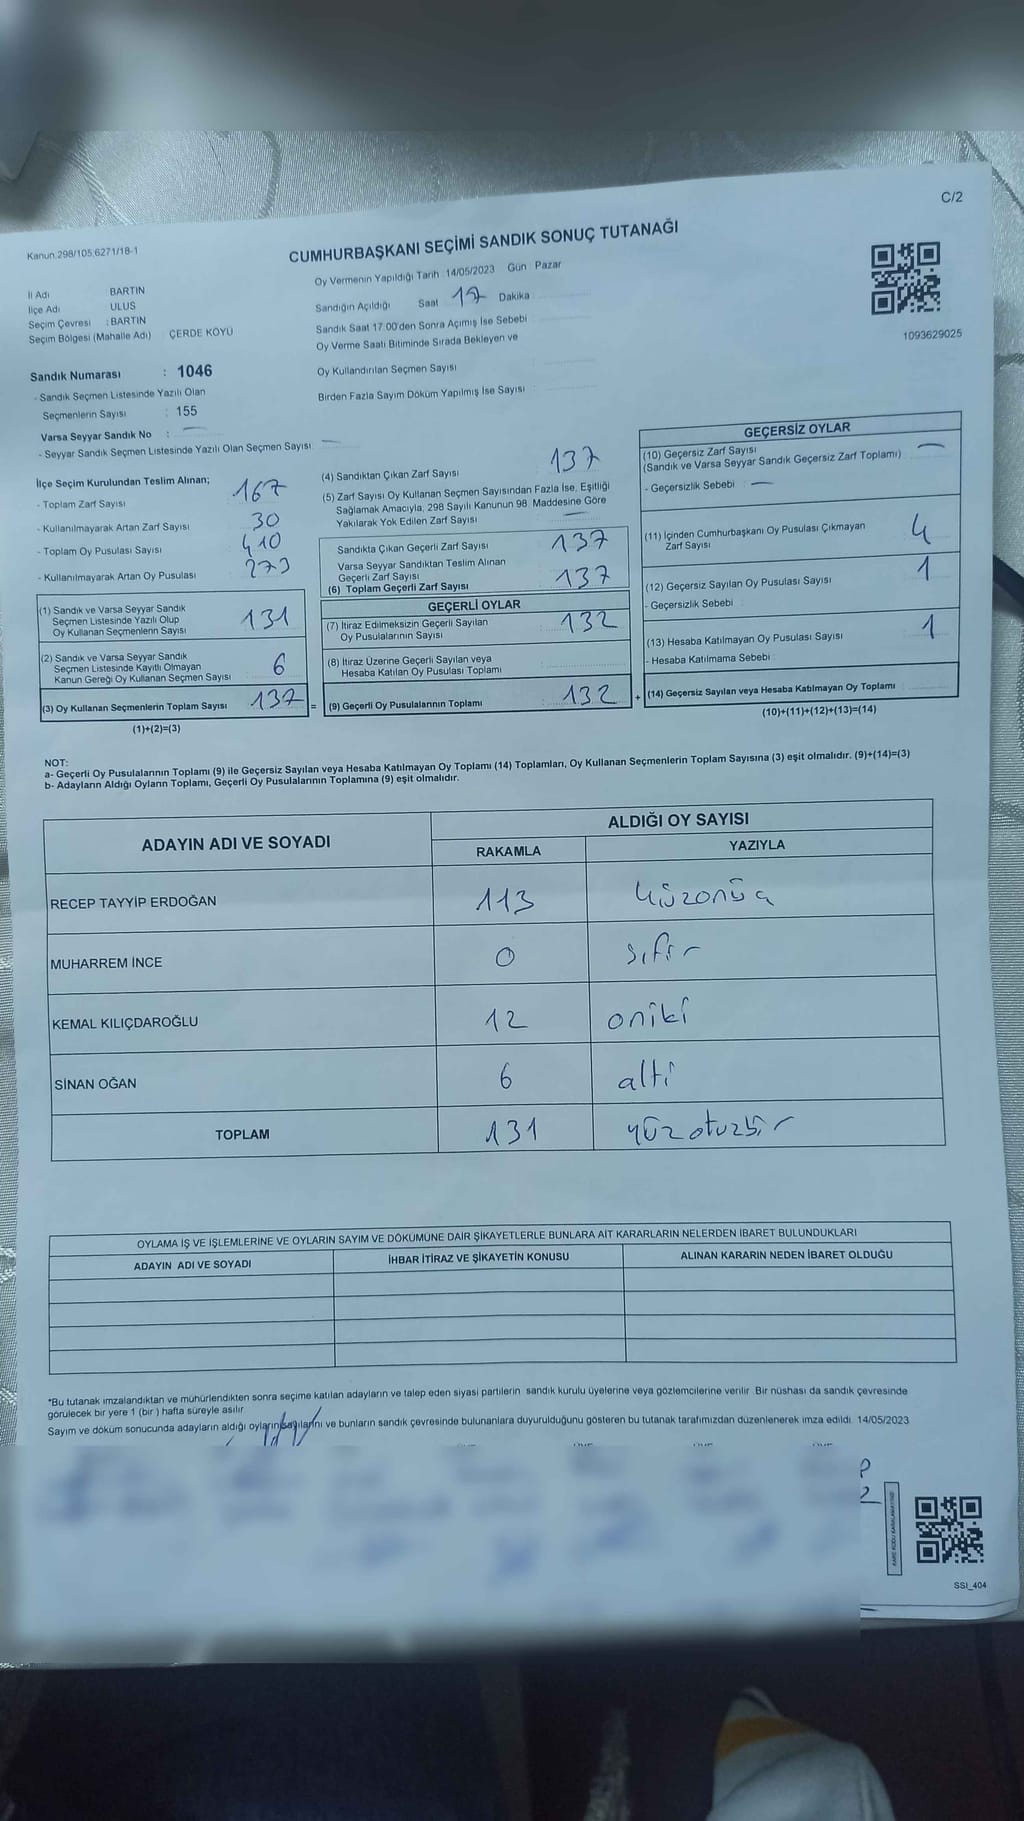 C/2
Kanun.298/105,6271/18-1
CUMHURBAŞKANI SEÇİMİ SANDIK SONUÇ TUTANAĞI
Oy Vermenin Yapıldığı Tarih 14/05/2023 Gün Pazar
İl Adı BARTIN
İlçe Adı ULUS
Seçim Çevresi : BARTIN
Seçim Bölgesi (Mahalle Adı) ÇERDE KÖYÜ
Sandığın Açıldığı Saat 17 Dakika
Sandık Saat 17:00'den Sonra Açılmış İse Sebebi
Oy Verme Saati Bitiminde Sırada Bekleyen ve
Oy Kullandırılan Seçmen Sayısı
Birden Fazla Sayım Döküm Yapılmış İse Sayısı
1093629025
Sandık Numarası : 1046
- Sandık Seçmen Listesinde Yazılı Olan
Seçmenlerin Sayısı : 155
Varsa Seyyar Sandık No : —
- Seyyar Sandık Seçmen Listesinde Yazılı Olan Seçmen Sayısı —
İlçe Seçim Kurulundan Teslim Alınan;
- Toplam Zarf Sayısı 167
- Kullanılmayarak Artan Zarf Sayısı 30
- Toplam Oy Pusulası Sayısı 410
- Kullanılmayarak Artan Oy Pusulası 273
(1) Sandık ve Varsa Seyyar Sandık
Seçmen Listesinde Yazılı Olup
Oy Kullanan Seçmenlerin Sayısı 131
(2) Sandık ve Varsa Seyyar Sandık
Seçmen Listesinde Kayıtlı Olmayan
Kanun Gereği Oy Kullanan Seçmen Sayısı 6
(3) Oy Kullanan Seçmenlerin Toplam Sayısı 137 =
(1)+(2)=(3)
(4) Sandıktan Çıkan Zarf Sayısı 137
(5) Zarf Sayısı Oy Kullanan Seçmen Sayısından Fazla İse, Eşitliği
Sağlamak Amacıyla, 298 Sayılı Kanunun 98. Maddesine Göre
Yakılarak Yok Edilen Zarf Sayısı —
Sandıkta Çıkan Geçerli Zarf Sayısı 137
Varsa Seyyar Sandıktan Teslim Alınan
Geçerli Zarf Sayısı
(6) Toplam Geçerli Zarf Sayısı 137
GEÇERLİ OYLAR
(7) İtiraz Edilmeksizin Geçerli Sayılan
Oy Pusulalarının Sayısı 132
(8) İtiraz Üzerine Geçerli Sayılan veya
Hesaba Katılan Oy Pusulası Toplamı
(9) Geçerli Oy Pusulalarının Toplamı 132 +
GEÇERSİZ OYLAR
(10) Geçersiz Zarf Sayısı —
(Sandık ve Varsa Seyyar Sandık Geçersiz Zarf Toplamı)
- Geçersizlik Sebebi : —
(11) İçinden Cumhurbaşkanı Oy Pusulası Çıkmayan
Zarf Sayısı 4
(12) Geçersiz Sayılan Oy Pusulası Sayısı 1
- Geçersizlik Sebebi :
(13) Hesaba Katılmayan Oy Pusulası Sayısı 1
- Hesaba Katılmama Sebebi :
(14) Geçersiz Sayılan veya Hesaba Katılmayan Oy Toplamı
(10)+(11)+(12)+(13)=(14)
NOT:
a- Geçerli Oy Pusulalarının Toplamı (9) ile Geçersiz Sayılan veya Hesaba Katılmayan Oy Toplamı (14) Toplamları, Oy Kullanan Seçmenlerin Toplam Sayısına (3) eşit olmalıdır. (9)+(14)=(3)
b- Adayların Aldığı Oyların Toplamı, Geçerli Oy Pusulalarının Toplamına (9) eşit olmalıdır.
ADAYIN ADI VE SOYADI ALDIĞI OY SAYISI
RAKAMLA YAZIYLA
RECEP TAYYİP ERDOĞAN 113 yüzonüç
MUHARREM İNCE 0 sıfır
KEMAL KILIÇDAROĞLU 12 oniki
SİNAN OĞAN 6 altı
TOPLAM 131 yüzotuzbir
OYLAMA İŞ VE İŞLEMLERİNE VE OYLARIN SAYIM VE DÖKÜMÜNE DAİR ŞİKAYETLERLE BUNLARA AİT KARARLARIN NELERDEN İBARET BULUNDUKLARI
ADAYIN ADI VE SOYADI İHBAR İTİRAZ VE ŞİKAYETİN KONUSU ALINAN KARARIN NEDEN İBARET OLDUĞU
*Bu tutanak imzalandıktan ve mühürlendikten sonra seçime katılan adayların ve talep eden siyasi partilerin sandık kurulu üyelerine veya gözlemcilerine verilir. Bir nüshası da sandık çevresinde
görülecek bir yere 1 (bir ) hafta süreyle asılır.
Sayım ve döküm sonucunda adayların aldığı oyların sayılarını ve bunların sandık çevresinde bulunanlara duyurulduğunu gösteren bu tutanak tarafımızdan düzenlenerek imza edildi. 14/05/2023
SSI_404